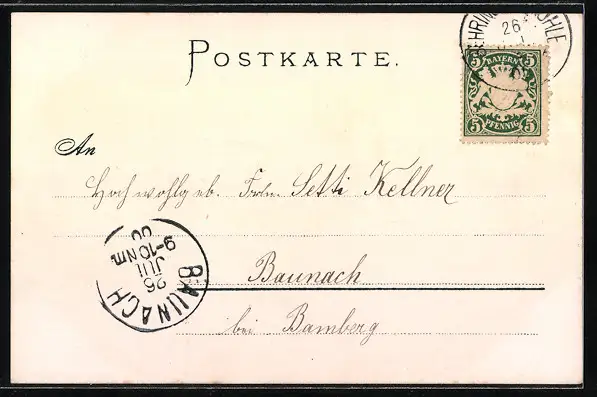 POSTKARTE.
26
5 BAYERN 5
5 PFENNIG 5
An
Hochwohlgeb. Frln. Setti Kellner
Baunach
bei Bamberg
BAUNACH
26
JUL
9-10 Nm.
00